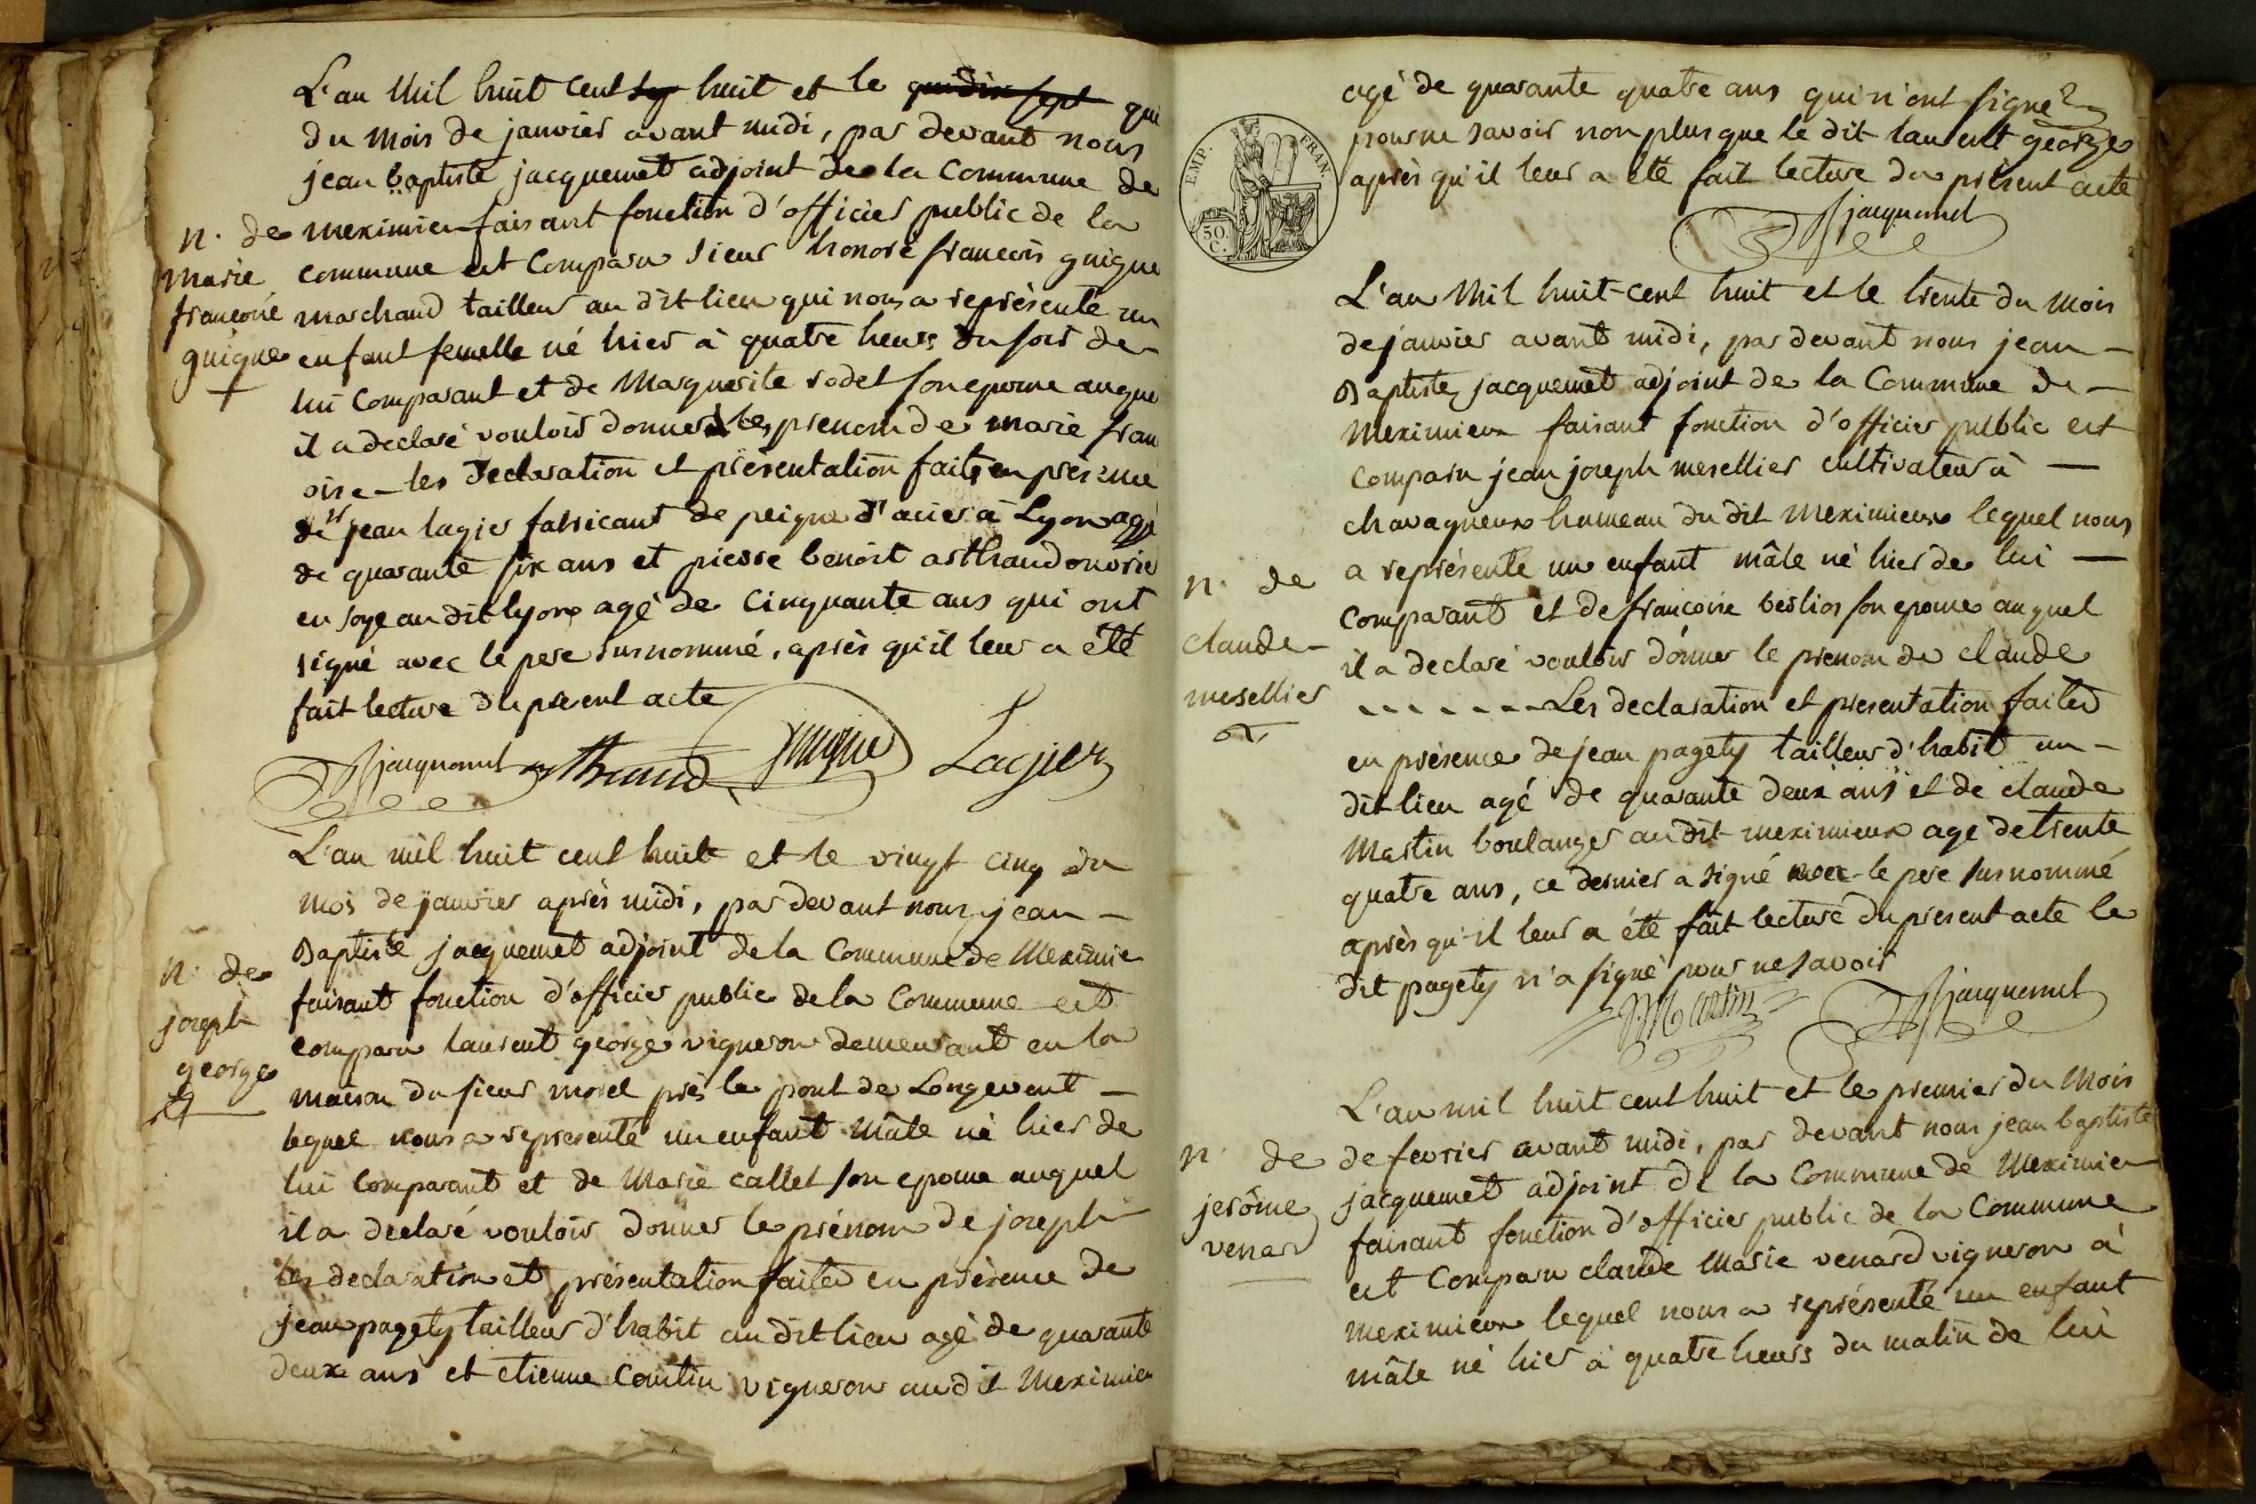 L'an Mil huit cent huit et le qui
du mois de janvier avant midi, par devant nous
jean baptiste jacquemet adjoint de la Commune de
meximieu faisant fonction d'officier public de la
commune est Comparu sieur honoré francois guigue
marchand tailleur au dit lieu qui nous a représenté un
enfant femelle né hier à quatre heurs du soir de
lui Comparant et de Marguerite rodet son epouse auque
il a declaré vouloir donner les prenom de marie fran
oise les Declaration et présentation faits en présence
de jean lagier fabricant de peigne d'acier à Lyon agé
de quarante six ans et pierre benoit arthaud ouvrie
en soye au dit lyon agé de Cinquante ans qui ont
signé avec le pere surnommé, après qu'il leur a été
fait lecture du present acte
n. de
marie
francoise
guigue
Jacquemet arthaud guigue Lagier
L'an mil huit cent huit et le vingt cinq du
mois de janvier après midi, par devant nous jean
Baptiste jacquemet adjoint de la Commune de Meximie
faisant fonction d'officier public de la Commune est
comparu laurent george vigneron demeurant en la
maison du sieur morel près le pont de Longevent
lequel nous a representé un enfant Mâle né hier de
lui Comparant et de Marie callet son epouse auquel
il a declaré vouloir donner le prénom de joseph
les declaration et présentation faites en présence de
jean pagety tailleur d'habit au dit lieu agé de quarante
deux ans et etienne Cointin vigneron au dit Meximieu
n. de
joseph
george
agé de quarante quatre ans qui n'ont signé
pour ne savoir non plus que le dit laurent george
après qu'il leur a été fait lecture du présent acte
EMP. FRAN.
50. C.
Jacquemet
L'an Mil huit-cent huit et le trente du Mois
de janvier avant midi, par devant nous jean
Baptiste jacquemet adjoint de la Commune de
Meximieux faisant fonction d'officier public est
Comparu jean joseph mesellier cultivateur à
chavagneux hameau du dit Meximieux lequel nous
a représenté un enfant mâle né hier de lui
Comparant et de francoise berlior son epouse auquel
il a declaré vouloir donner le prenom de claude
Les declaration et presentation faites
en présence de jean pagety tailleur d'habit au
dit lieu agé de quarante deux ans et de claude
Martin boulanger au dit meximieux age de trente
quatre ans, ce dernier a signé avec le pere surnommé
après qu'il leur a été fait lecture du present acte le
dit pagety n'a signé pour ne savoir
n. de
claude
mesellier
Martin Jacquemet
L'an mil huit cent huit et le premier du Mois
de fevrier avant midi, par devant nous jean baptiste
jacquemet adjoint de la Commune de Meximieu
faisant fonction d'officier public de la Commune
est Comparu claude Marie venard vigneron à
meximieux lequel nous a représenté un enfant
mâle né hier à quatre heurs du matin de lui
n. de
jerôme
venard